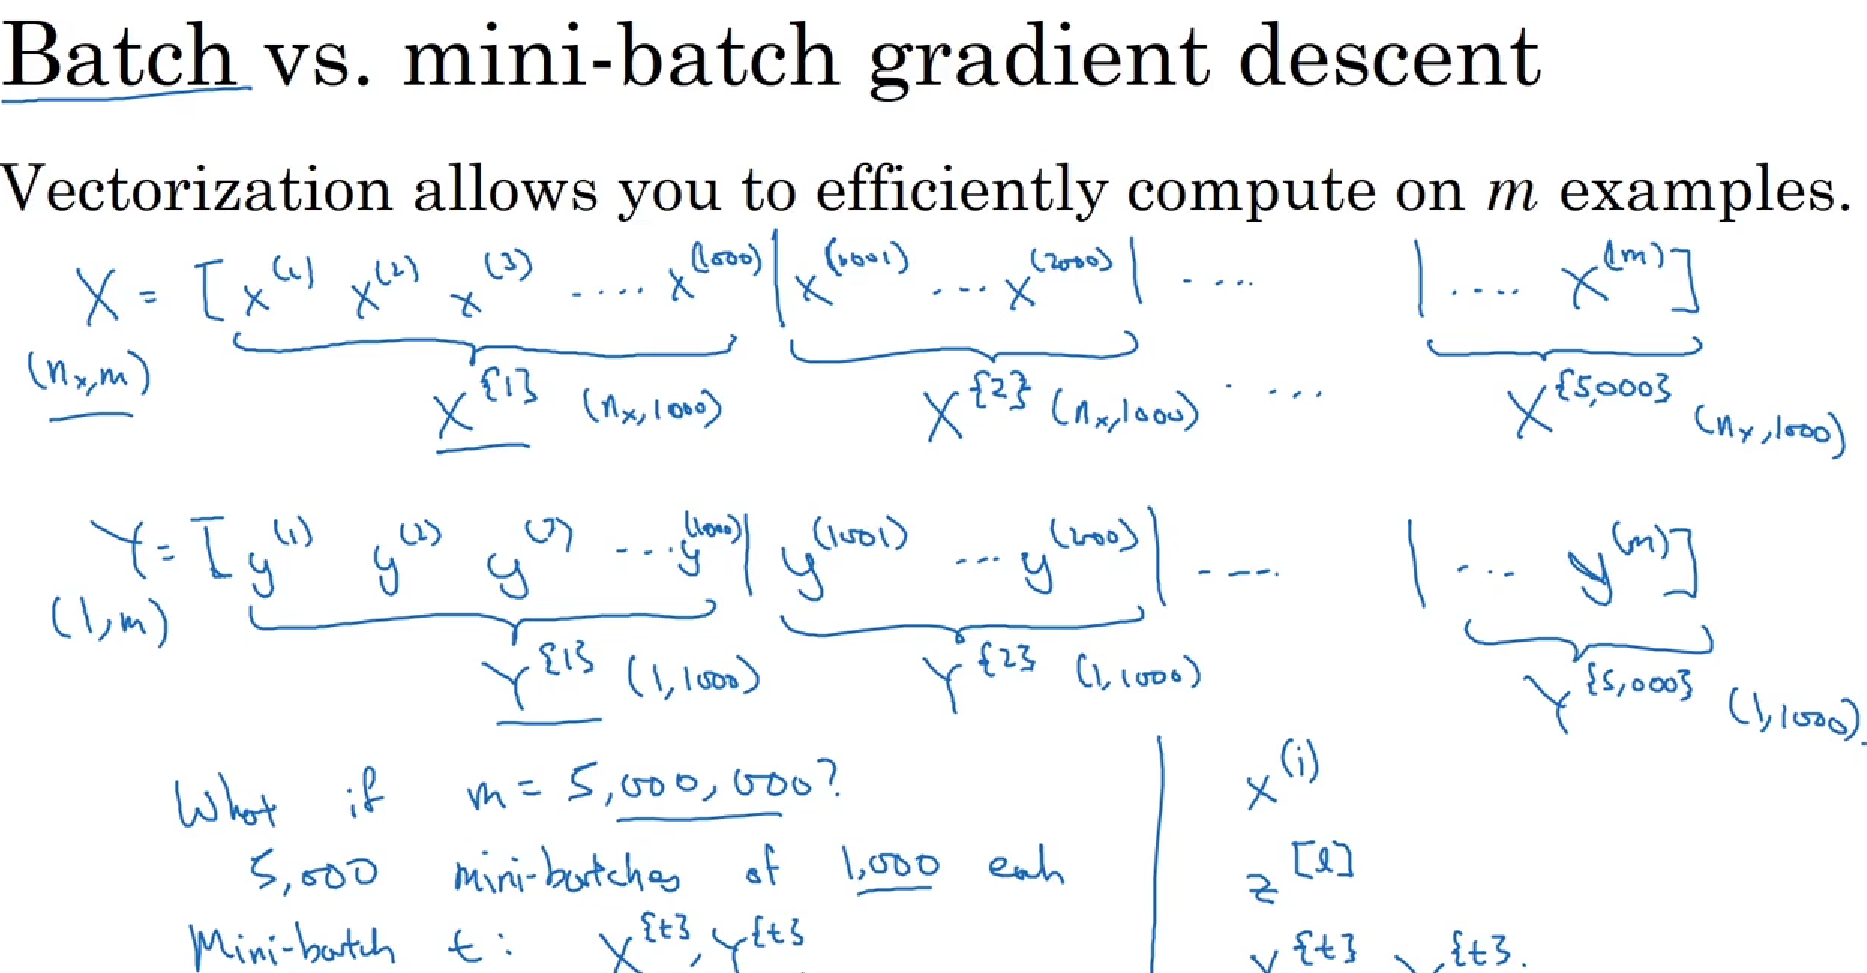 Batch vs. mini-batch gradient descent
Vectorization allows you to efficiently compute on m examples.
X = [x^(1) x^(2) x^(3) .... x^(1000) | x^(1001) ... x^(2000) | .... | .... x^(m)]
(n_x, m)
X^{1} (n_x, 1000) X^{2} (n_x, 1000) .... X^{5,000} (n_x, 1000)
Y = [y^(1) y^(2) y^(3) ... y^(1000) | y^(1001) ... y^(2000) | ---- | ... y^(m)]
(1, m)
Y^{1} (1, 1000) Y^{2} (1, 1000) Y^{5,000} (1, 1000).
What if m = 5,000,000?
5,000 mini-batches of 1,000 each
Mini-batch t: X^{t}, Y^{t}
x^(i)
z^[l]
X^{t}, Y^{t}.